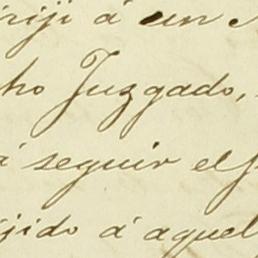 á un
ho Juzgado,
á seguir el
jido á aquel